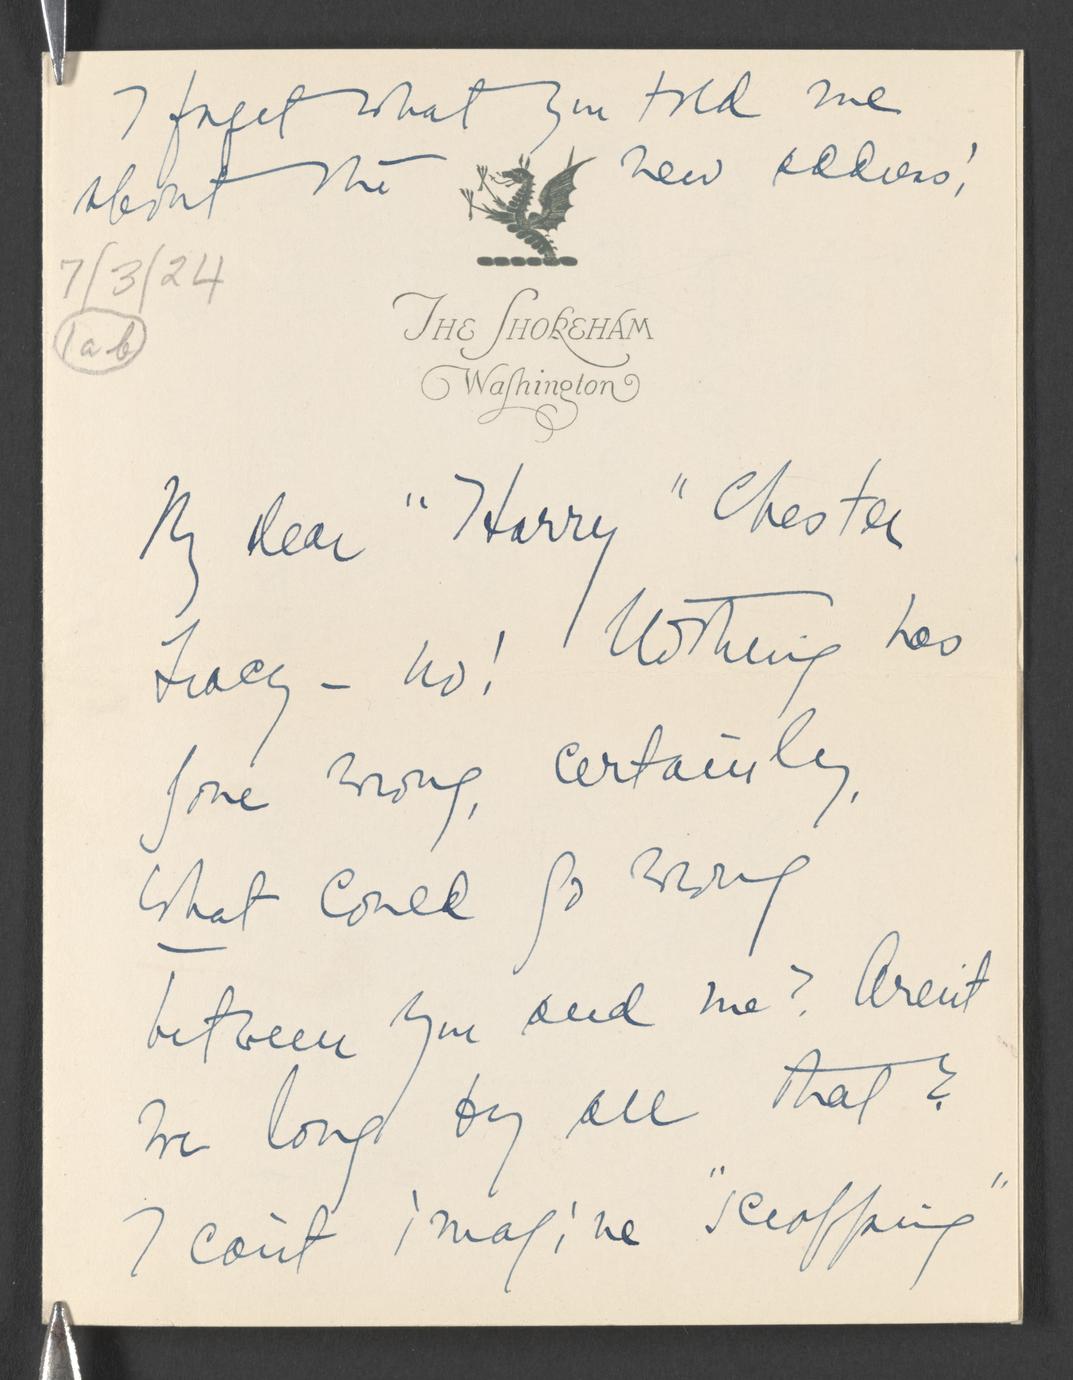 I forget what you told me
about the new address!
7/3/24
1ab
THE SHOREHAM
Washington
My dear "Harry" Chester
Tracy – no! Nothing has
gone wrong, certainly,
what could go wrong
between you and me? Aren't
we long by all that?
I can't imagine "scrapping"